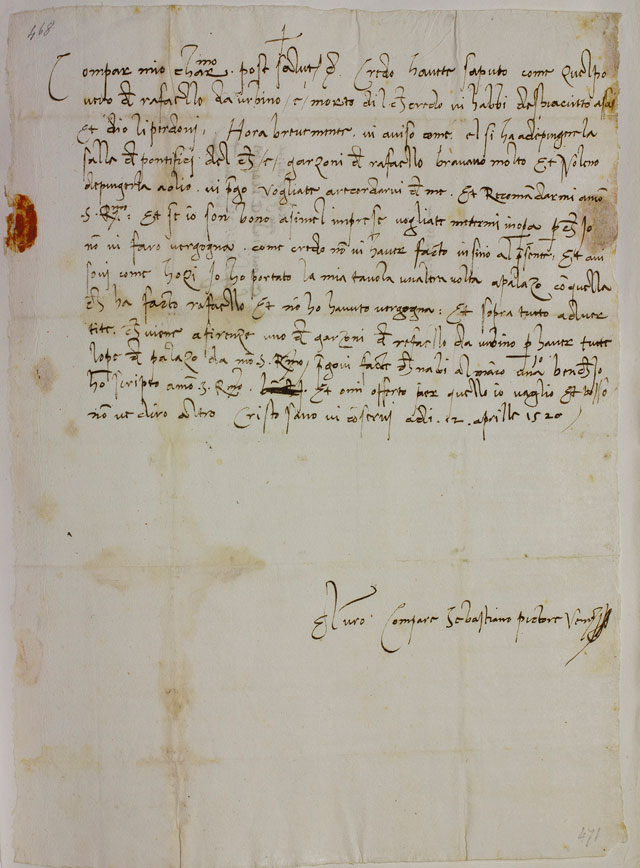 468
Compar mio char.mo post salutes &. Credo havete saputo come quel po
vero de rafaello da urbino, e, morto di che credo vi habbi despiaciuto assai
Et dio li perdoni, Hora brevemente, vi aviso come, el si ha a depingere la
salla de pontefici del che, e, garzoni de rafaello bravano molto Et voleno
depingerla a olio. vi prego vogliate arecordarvi de me. Et Recomandarmi a mon.
S. R.mo: Et se io son bono a simel imprese vogliate metermi in opera perche Io
non vi faro vergogna. come credo non vi haver facto in sino al presente. Et avi
sovi come hogi Io ho portato la mia tavola unaltra volta a palazo con quella
che ha facto rafaello Et non ho havuto vergogna: Et sopra tutto adver
tite, che viene a firenze uno de garzoni de rafaello da urbino per haver tutte
lopre de palazo da mon. S. R.mo, pregovi facte
ho scripto a mon. S. R.mo. Et omi offerto per quello io vaglio Et posso
non ve diro altro Cristo sano vi conservi adi. 12. aprille 1520
El vro. Compare Sebastiano pictore Ven
471